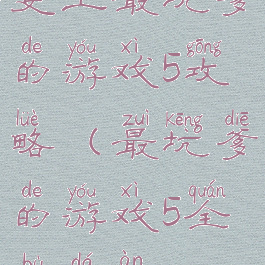 de yóu xì gōng
的游戏5攻
luè zuì kēng diē
略（最坑爹
de yóu xì quán
的游戏5全